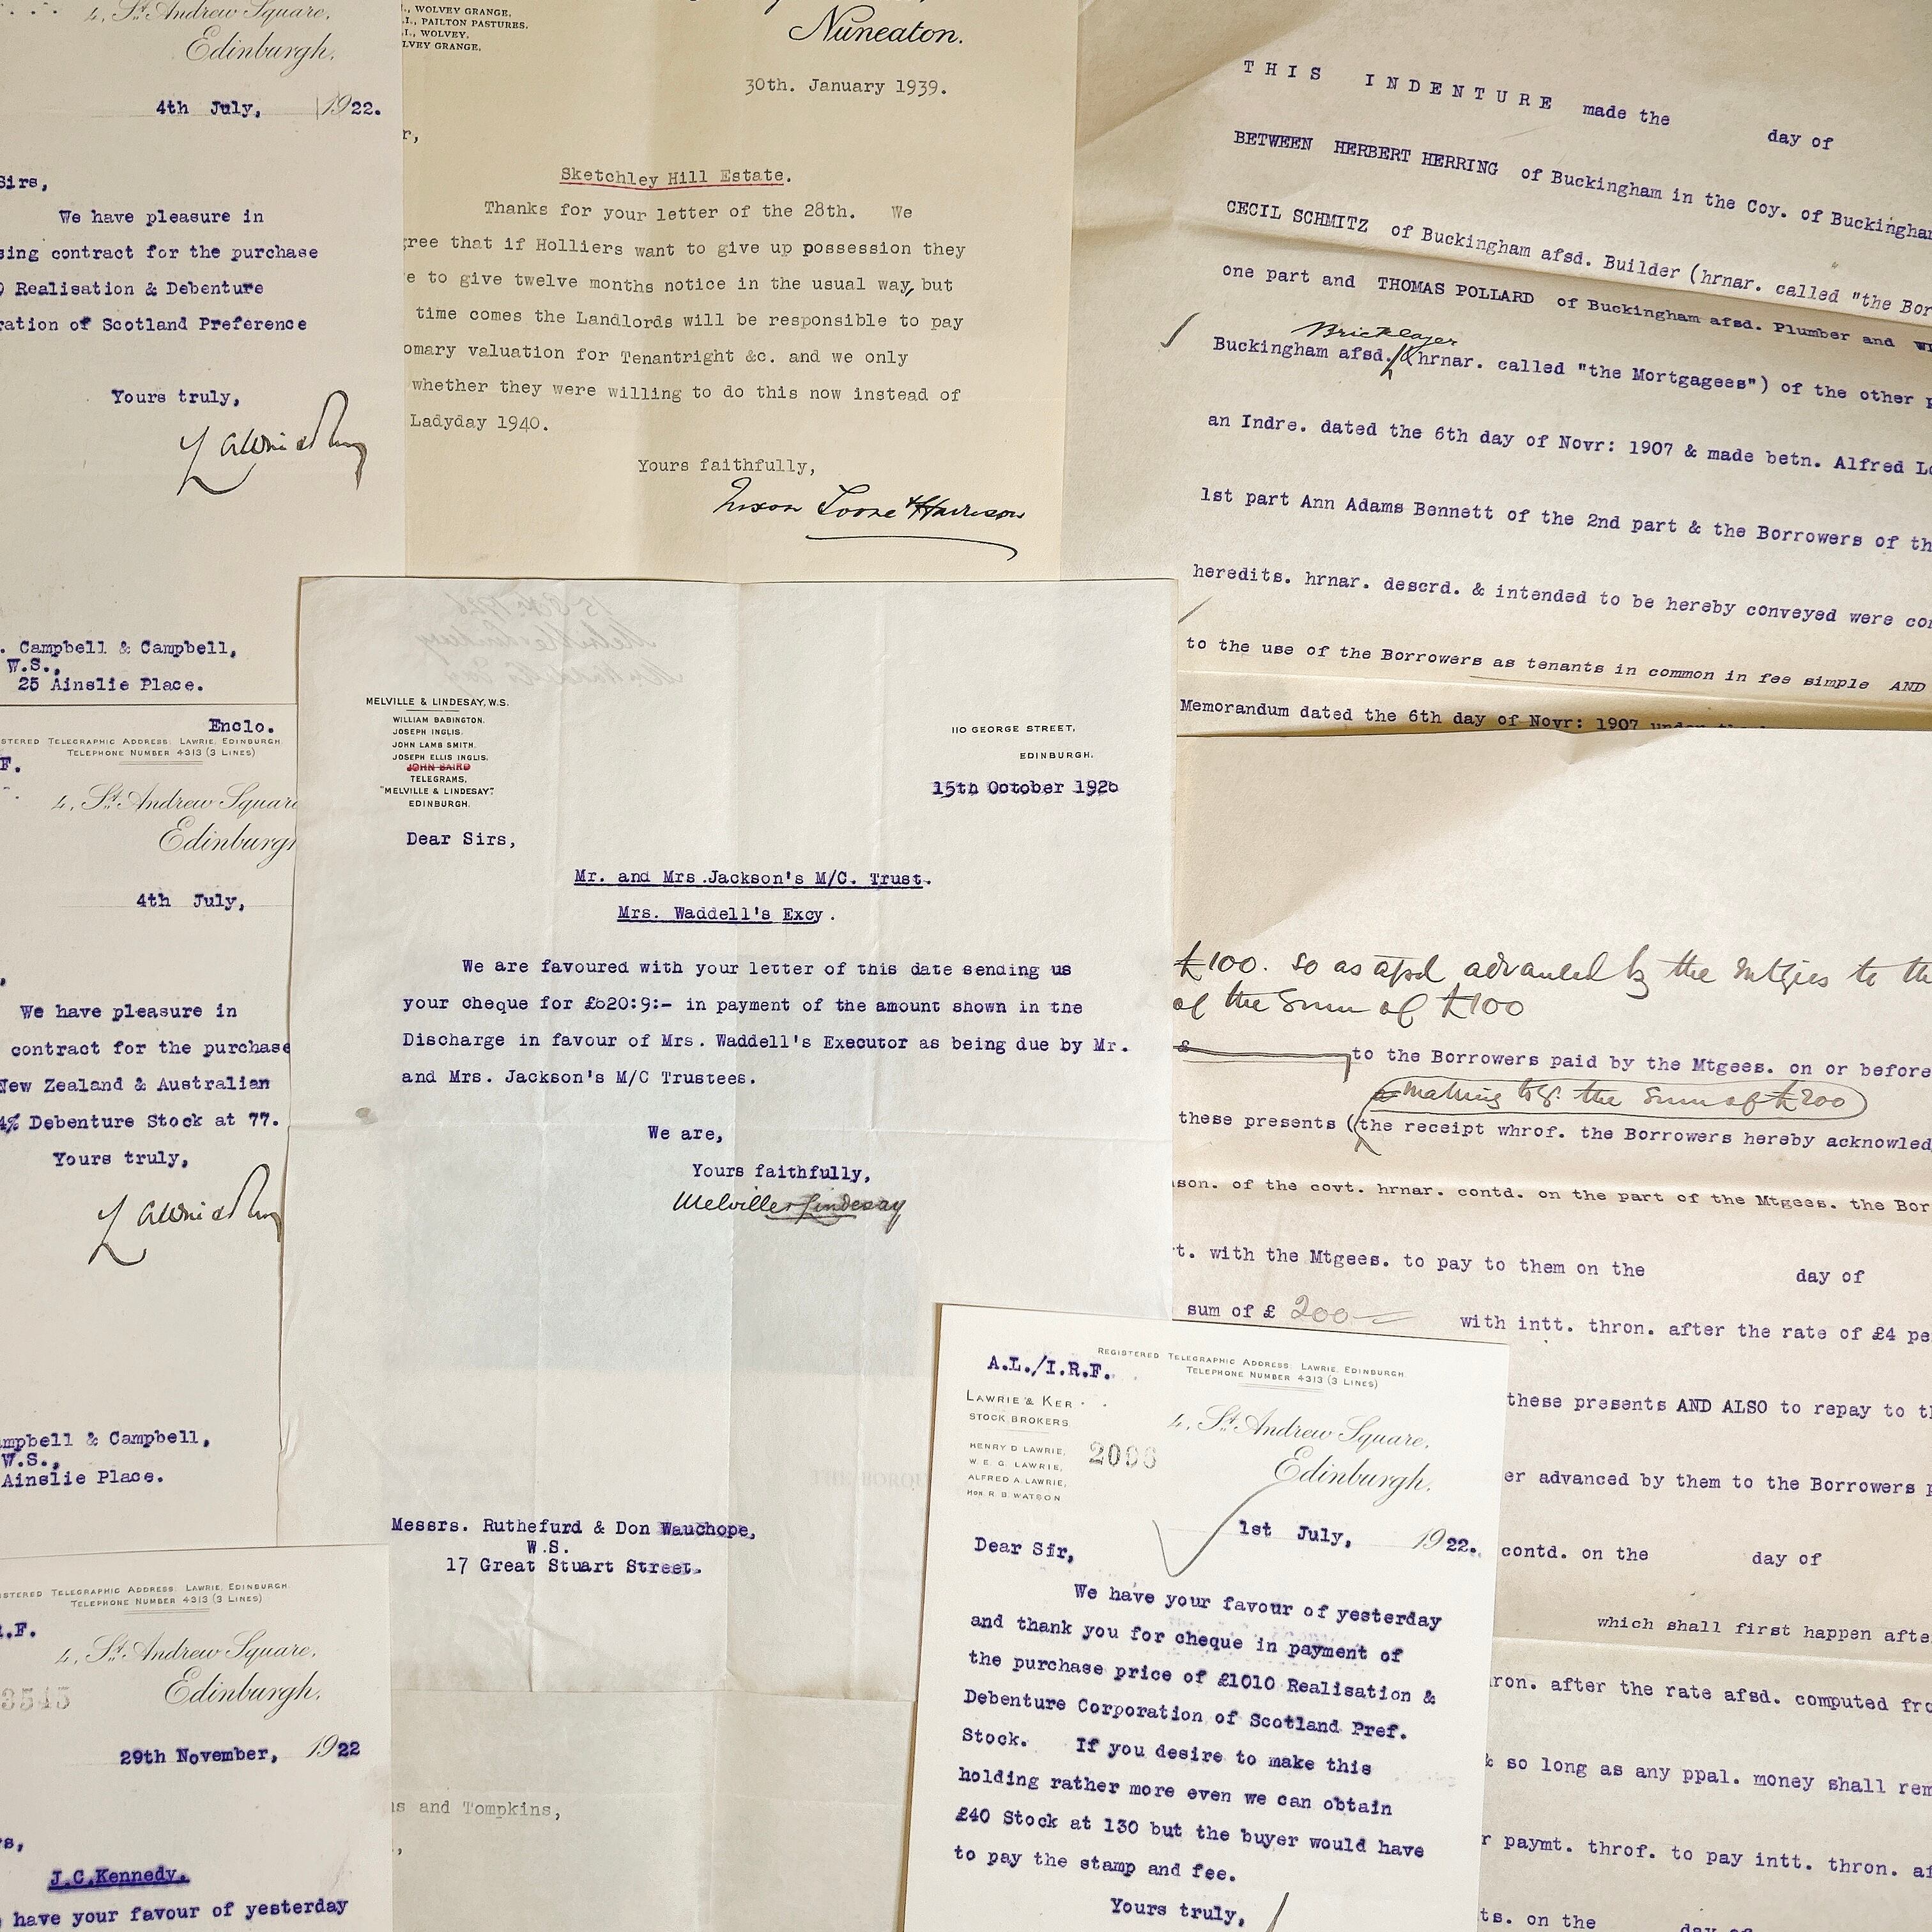 4, St. Andrew Square,
Edinburgh,
4th July, 1922.
Sirs,
We have pleasure in
sing contract for the purchase
Realisation & Debenture
ration of Scotland Preference
Yours truly,
. Campbell & Campbell,
W.S.,
25 Ainslie Place.
Enclo.
., WOLVEY GRANGE,
.I., PAILTON PASTURES.
.I., WOLVEY.
LVEY GRANGE,
Nuneaton.
30th. January 1939.
r,
Sketchley Hill Estate.
Thanks for your letter of the 28th. We
gree that if Holliers want to give up possession they
e to give twelve months notice in the usual way, but
time comes the Landlords will be responsible to pay
omary valuation for Tenantright &c. and we only
whether they were willing to do this now instead of
Ladyday 1940.
Yours faithfully,
THIS INDENTURE made the day of
BETWEEN HERBERT HERRING of Buckingham in the Coy. of Buckingham
CECIL SCHMITZ of Buckingham afsd. Builder (hrnar. called "the Bor
one part and THOMAS POLLARD of Buckingham afsd. Plumber and
Bricklayer
Buckingham afsd. (hrnar. called "the Mortgagees") of the other p
an Indre. dated the 6th day of Novr: 1907 & made betn. Alfred Lo
1st part Ann Adams Bennett of the 2nd part & the Borrowers of th
heredits. hrnar. descrd. & intended to be hereby conveyed were con
to the use of the Borrowers as tenants in common in fee simple AND
Memorandum dated the 6th day of Novr: 1907 under the
STERED TELEGRAPHIC ADDRESS: LAWRIE, EDINBURGH.
TELEPHONE NUMBER 4313 (3 LINES)
F.
4, St. Andrew Square
Edinburgh
4th July,
We have pleasure in
contract for the purchase
New Zealand & Australian
4% Debenture Stock at 77.
Yours truly,
ampbell & Campbell,
W.S.,
Ainslie Place.
MELVILLE & LINDESAY, W.S.
WILLIAM BABINGTON.
JOSEPH INGLIS.
JOHN LAMB SMITH.
JOSEPH ELLIS INGLIS.
JOHN BAIRD
TELEGRAMS,
"MELVILLE & LINDESAY."
EDINBURGH.
110 GEORGE STREET,
EDINBURGH.
15th October 1926
Dear Sirs,
Mr. and Mrs.Jackson's M/C. Trust.
Mrs. Waddell's Excy.
We are favoured with your letter of this date sending us
your cheque for £620:9:- in payment of the amount shown in the
Discharge in favour of Mrs. Waddell's Executor as being due by Mr.
and Mrs. Jackson's M/C Trustees.
We are,
Yours faithfully,
Melville & Lindesay
Messrs. Ruthefurd & Don Wauchope,
W.S.
17 Great Stuart Street.
£100. so as afsd advanced by the Mtgees to the
of the sum of £100
to the Borrowers paid by the Mtgees. on or before
making tog. the sum of £200
these presents (the receipt whrof. the Borrowers hereby acknowled
son. of the covt. hrnar. contd. on the part of the Mtgees. the Bor
t. with the Mtgees. to pay to them on the day of
sum of £ 200 with intt. thron. after the rate of £4 pe
these presents AND ALSO to repay to th
er advanced by them to the Borrowers p
contd. on the day of
which shall first happen afte
ron. after the rate afsd. computed fro
& so long as any ppal. money shall rem
r paymt. throf. to pay intt. thron. af
ts. on the day of
STERED TELEGRAPHIC ADDRESS: LAWRIE, EDINBURGH.
TELEPHONE NUMBER 4313 (3 LINES)
.F.
4, St. Andrew Square,
Edinburgh,
3545
29th November, 1922
rs,
J.C.Kennedy.
have your favour of yesterday
ns and Tompkins,
A.L./I.R.F.
REGISTERED TELEGRAPHIC ADDRESS: LAWRIE, EDINBURGH.
TELEPHONE NUMBER 4313 (3 LINES)
LAWRIE & KER
STOCK BROKERS
HENRY D LAWRIE,
W. E. G. LAWRIE,
ALFRED A. LAWRIE,
HON R. B. WATSON
2096
4, St. Andrew Square,
Edinburgh,
1st July, 1922.
Dear Sir,
We have your favour of yesterday
and thank you for cheque in payment of
the purchase price of £1010 Realisation &
Debenture Corporation of Scotland Pref.
Stock. If you desire to make this
holding rather more even we can obtain
£40 Stock at 130 but the buyer would have
to pay the stamp and fee.
Yours truly,